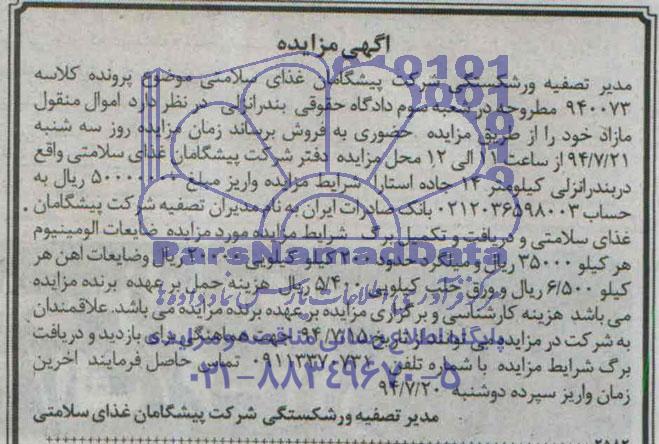 آگهی مزایده
مدیر تصفیه ورشکستگی شرکت پیشگامان غذای سلامتی موضوع پرونده کلاسه
۹۴۰۰۷۳ مطروحه در شعبه سوم دادگاه حقوقی بندرانزلی در نظر دارد اموال منقول
مازاد خود را از طریق مزایده حضوری به فروش برساند زمان مزایده روز سه شنبه
۹۴/۷/۲۱ از ساعت ۱۱ الی ۱۲ محل مزایده دفتر شرکت پیشگامان غذای سلامتی واقع
دربندرانزلی کیلومتر ۱۲ جاده استارا شرایط مزایده واریز مبلغ ریال به
حساب ۰۲۱۲۰۳۶۵۹۸۰۰۳ بانک صادرات ایران به نام مدیران تصفیه شرکت پیشگامان
غذای سلامتی و دریافت و تکمیل برگ شرایط مزایده مورد مزایده ضایعات الومینیوم
هر کیلو ۳۵۰۰۰ ریال و میلگرد حدود کیلو کیلویی ریال وضایعات اهن هر
کیلو ۶/۵۰۰ ریال و ورق حلب کیلویی ۵/۴۰۰ ریال هزینه حمل بر عهده برنده مزایده
می باشد هزینه کارشناسی و برگزاری مزایده بر عهده برنده مزایده می باشد. علاقمندان
به شرکت در مزایده می توانند از تاریخ ۹۴/۷/۱۵ جهت هماهنگی برای بازدید و دریافت
برگ شرایط مزایده با شماره تلفن تماس حاصل فرمایند اخرین
زمان واریز سپرده دوشنبه ۹۴/۷/۲۰
مدیر تصفیه ورشکستگی شرکت پیشگامان غذای سلامتی
ParsNamadData
مرکز فرآوری اطلاعات پارس نماد داده ها
پایگاه اطلاع رسانی مناقصه و مزایده
۰۲۱-۸۸۳۴۹۶۷۰-۵